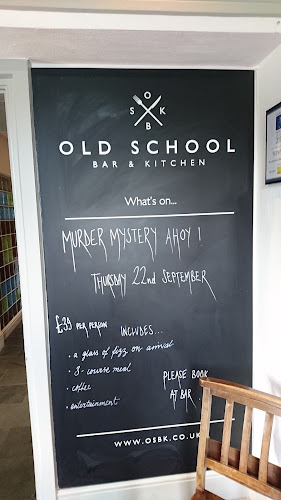 O
S K
B
OLD SCHOOL
BAR & KITCHEN
What's on...
MURDER MYSTERY AHOY !
THURSDAY 22nd SEPTEMBER
£39 PER PERSON INCLUDES...
• a glass of fizz on arrival
• 3-course meal
• coffee
• entertainment
PLEASE BOOK
AT BAR
WWW.OSBK.CO.UK